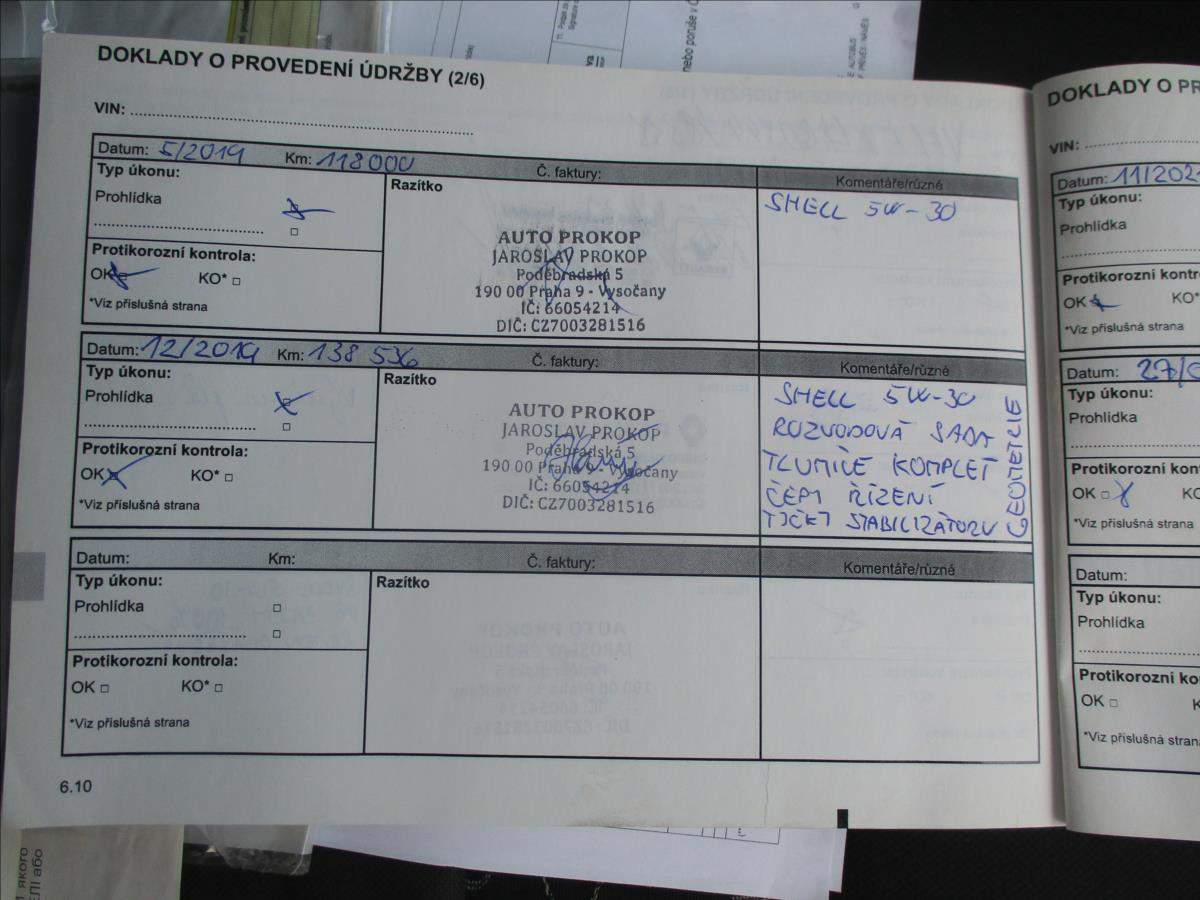 DOKLADY O PROVEDENÍ ÚDRŽBY (2/6)
VIN:
Datum: 5/2019 Km: 118000 Č. faktury: Komentáře/různé
Typ úkonu:
Razítko
Prohlídka
SHELL 5W-30
AUTO PROKOP
JAROSLAV PROKOP
Poděbradská 5
190 00 Praha 9 - Vysočany
IČ: 66054214
DIČ: CZ7003281516
Protikorozní kontrola:
OK KO*
*Viz příslušná strana
Datum: 12/2019 Km: 138 536 Č. faktury: Komentáře/různé
Typ úkonu:
Razítko
Prohlídka
AUTO PROKOP
JAROSLAV PROKOP
Poděbradská 5
190 00 Praha 9 - Vysočany
IČ: 66054214
DIČ: CZ7003281516
SHELL 5W-30
ROZVODOVÁ SADA
TLUMIČE KOMPLET
ČEPY ŘÍZENÍ
TYČKY STABILIZÁTORU
GEOMETRIE
Protikorozní kontrola:
OK KO*
*Viz příslušná strana
Datum: Km: Č. faktury: Komentáře/různé
Typ úkonu:
Razítko
Prohlídka
Protikorozní kontrola:
OK KO*
*Viz příslušná strana
6.10
DOKLADY O PR
VIN:
Datum: 11/202
Typ úkonu:
Prohlídka
Protikorozní kontr
OK KO*
*Viz příslušná strana
Datum: 27/0
Typ úkonu:
Prohlídka
Protikorozní kont
OK
*Viz příslušná strana
Datum:
Typ úkonu:
Prohlídka
Protikorozní ko
OK
*Viz příslušná strana
nebo poruše v Č